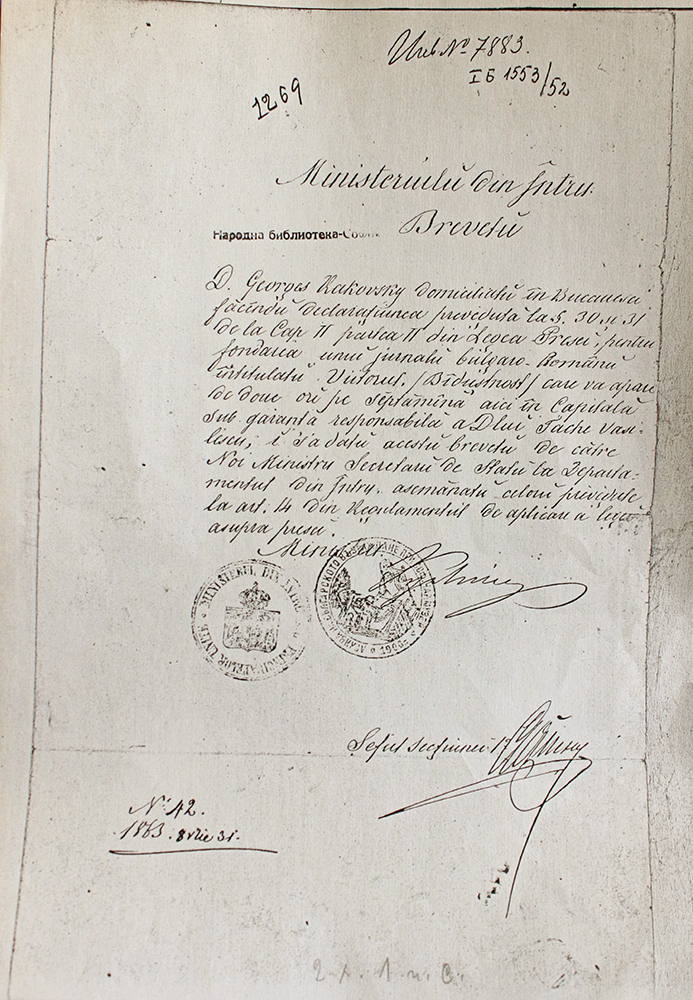 Инв № 7883.
I Б 1553/52
1269
Ministeriulŭ din Întru.
Народна библиотека-Со
Brevetŭ
D. Georges Rakovsky domiciliatŭ în Bucuresci
făcêndŭ declarațiunea prevĕdută la §. 30 și 31
de la Cap II partea II din Legea Presei, pentru
fondarea unui jurnalŭ bulgaro-Românŭ
intitulatŭ Viitorul, /Bŭdŭștnost/ care va apare
de doue ori pe septămînă aici în Capitală
sub garanta responsabila a Dlui Tache Vasi-
liscu, i s'a datŭ acestŭ brevetŭ de către
Noi Ministru Secretarŭ de Statŭ la Departa-
mentul din Întru, asemănatŭ celorŭ prevĕdute
la art. 14 din Regulamentul de aplicare a legei
asupra presei.
Ministru
MINISTERUL DIN
1900
Șeful secțiunei
No 42.
1863. 8vrie 31.